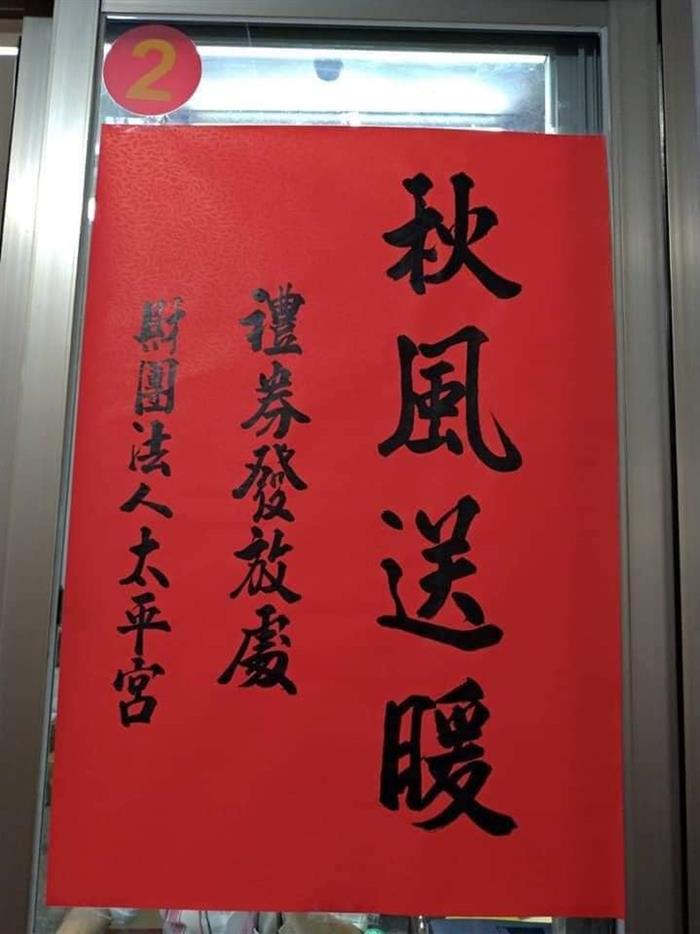 2
秋風送暖
禮券發放處
財團法人太平宮